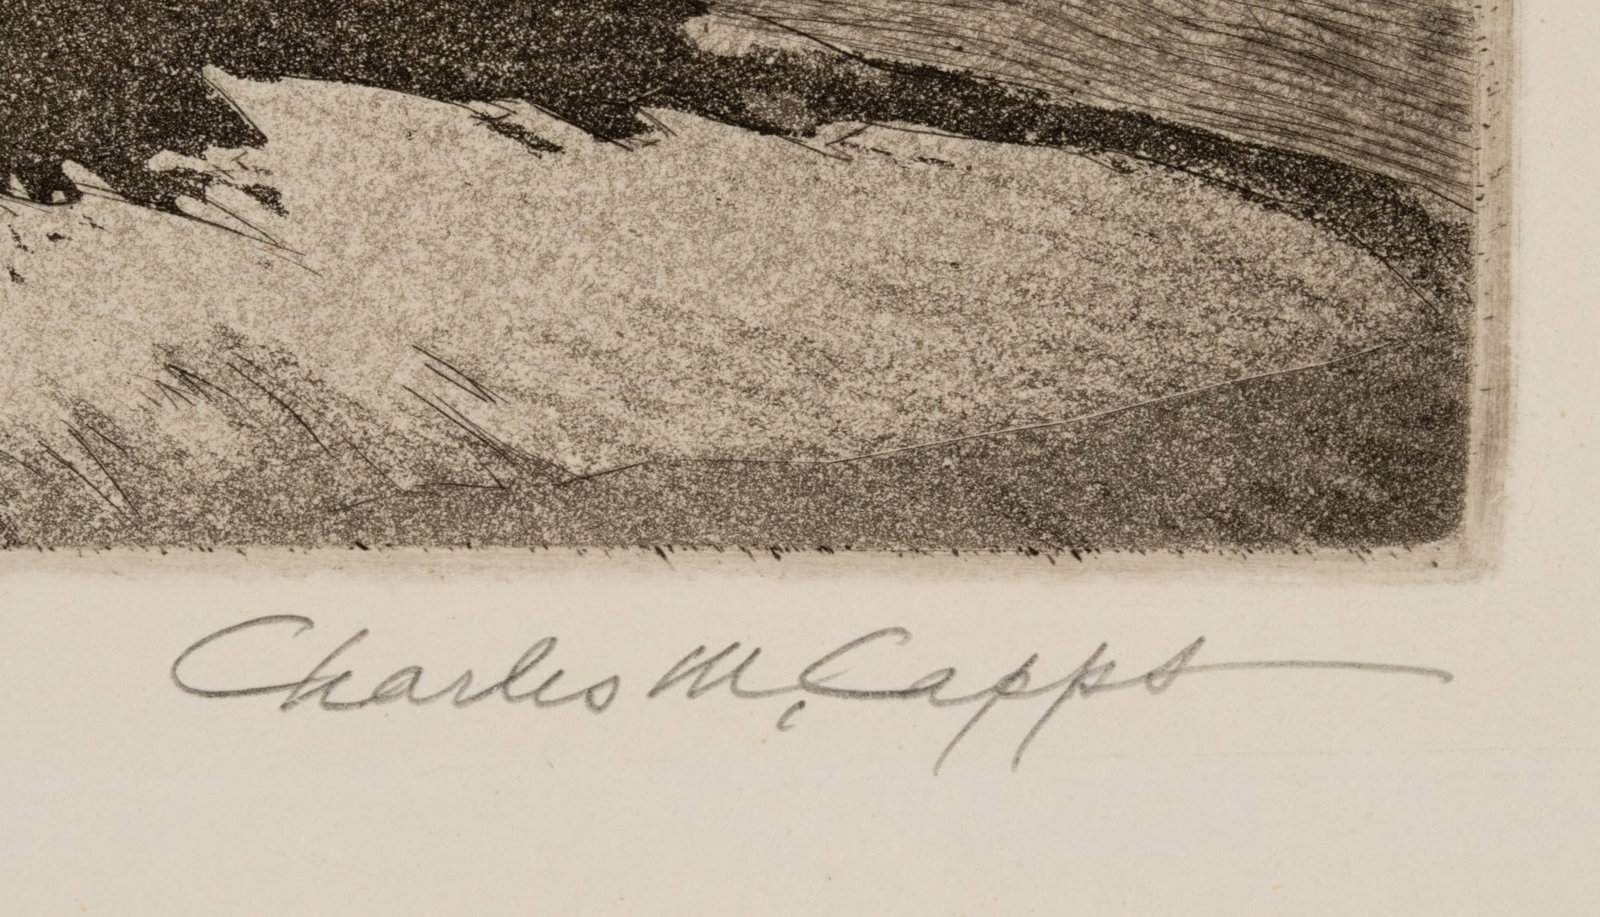 Charles M. Capps